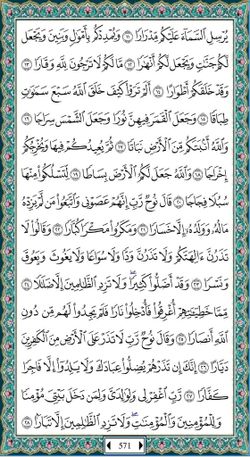 يُرْسِلِ ٱلسَّمَآءَ عَلَيْكُم مِّدْرَارًا ١١ وَيُمْدِدْكُم بِأَمْوَٰلٍ وَبَنِينَ وَيَجْعَل
لَّكُمْ جَنَّٰتٍ وَيَجْعَل لَّكُمْ أَنْهَٰرًا ١٢ مَّا لَكُمْ لَا تَرْجُونَ لِلَّهِ وَقَارًا ١٣
وَقَدْ خَلَقَكُمْ أَطْوَارًا ١٤ أَلَمْ تَرَوْا۟ كَيْفَ خَلَقَ ٱللَّهُ سَبْعَ سَمَٰوَٰتٍ
طِبَاقًا ١٥ وَجَعَلَ ٱلْقَمَرَ فِيهِنَّ نُورًا وَجَعَلَ ٱلشَّمْسَ سِرَاجًا ١٦
وَٱللَّهُ أَنۢبَتَكُم مِّنَ ٱلْأَرْضِ نَبَاتًا ١٧ ثُمَّ يُعِيدُكُمْ فِيهَا وَيُخْرِجُكُمْ
إِخْرَاجًا ١٨ وَٱللَّهُ جَعَلَ لَكُمُ ٱلْأَرْضَ بِسَاطًا ١٩ لِّتَسْلُكُوا۟ مِنْهَا
سُبُلًا فِجَاجًا ٢٠ قَالَ نُوحٌ رَّبِّ إِنَّهُمْ عَصَوْنِى وَٱتَّبَعُوا۟ مَن لَّمْ يَزِدْهُ
مَالُهُۥ وَوَلَدُهُۥٓ إِلَّا خَسَارًا ٢١ وَمَكَرُوا۟ مَكْرًا كُبَّارًا ٢٢ وَقَالُوا۟ لَا
تَذَرُنَّ ءَالِهَتَكُمْ وَلَا تَذَرُنَّ وَدًّا وَلَا سُوَاعًا وَلَا يَغُوثَ وَيَعُوقَ
وَنَسْرًا ٢٣ وَقَدْ أَضَلُّوا۟ كَثِيرًا ۖ وَلَا تَزِدِ ٱلظَّٰلِمِينَ إِلَّا ضَلَٰلًا ٢٤
مِّمَّا خَطِيٓـَٰٔتِهِمْ أُغْرِقُوا۟ فَأُدْخِلُوا۟ نَارًا فَلَمْ يَجِدُوا۟ لَهُم مِّن دُونِ
ٱللَّهِ أَنصَارًا ٢٥ وَقَالَ نُوحٌ رَّبِّ لَا تَذَرْ عَلَى ٱلْأَرْضِ مِنَ ٱلْكَٰفِرِينَ
دَيَّارًا ٢٦ إِنَّكَ إِن تَذَرْهُمْ يُضِلُّوا۟ عِبَادَكَ وَلَا يَلِدُوٓا۟ إِلَّا فَاجِرًا
كَفَّارًا ٢٧ رَّبِّ ٱغْفِرْ لِى وَلِوَٰلِدَىَّ وَلِمَن دَخَلَ بَيْتِىَ مُؤْمِنًا
وَلِلْمُؤْمِنِينَ وَٱلْمُؤْمِنَٰتِ ۖ وَلَا تَزِدِ ٱلظَّٰلِمِينَ إِلَّا تَبَارًۢا ٢٨
571